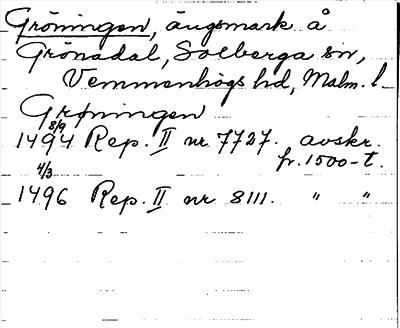 Gröningen, ängsmark å
Grönadal, Solberga sn,
Vemmenhögs hd, Malm. l.
Grøningen
1494 8/9 Rep. II nr 7727. avskr. fr. 1500-t.
1496 4/3 Rep. II nr 8111. " "